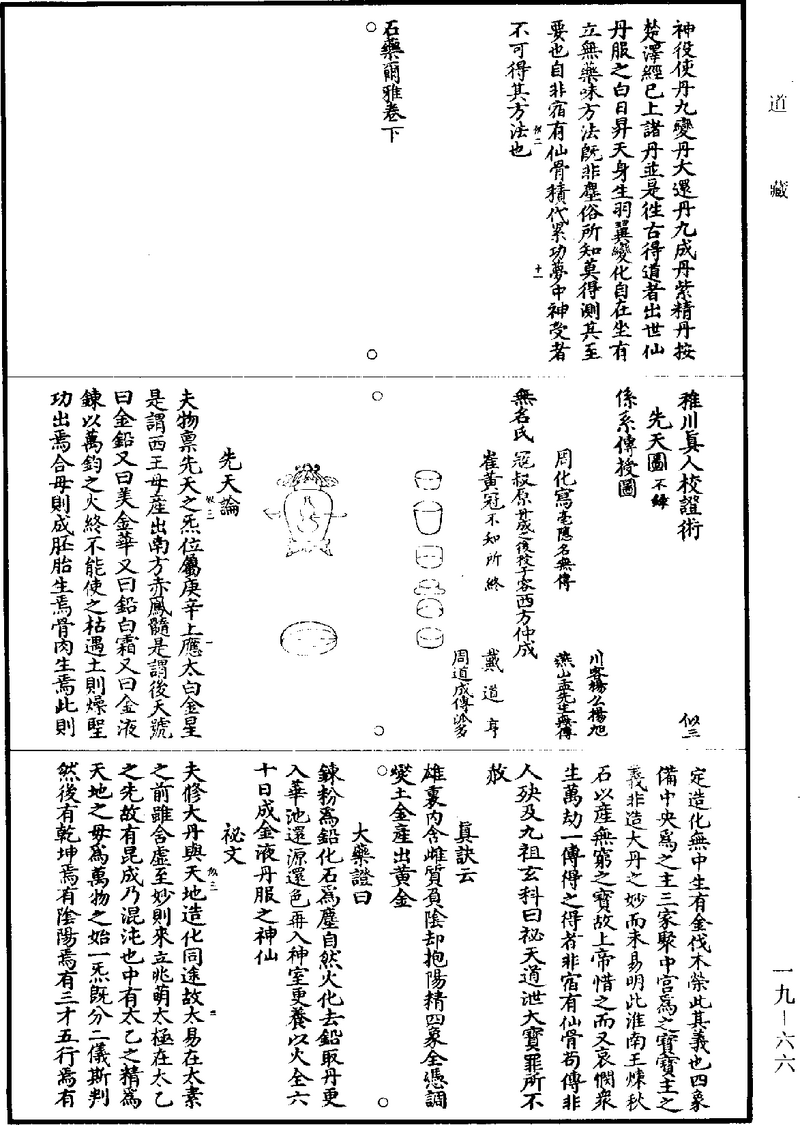 道藏
神役使丹九變丹大還丹九成丹紫精丹按
楚澤經已上諸丹並是徃古得道者出世仙
丹服之白日昇天身生羽翼變化自在坐有
立無藥味方法旣非塵俗所知莫得測其至
要也自非宿有仙骨積代累功夢中神受者
似二
十一
不可得其方法也
石藥爾雅卷下
稚川眞人校證術
似三
先天圖不錄
係系傳授圖
川客楊公揚旭
周化寫亳隱名無傳
燕山孟先生無傳
無名氏
寇叔原丹成之後授子客西方仲成
崔黃冠不知所終
戴道亨
周道成傳派多
先天論
夫物禀先天之炁位屬庚辛上應太白金星
似三
一
是謂西王母產出南方赤鳳髓是謂後天號
曰金鉛又曰美金華又曰鉛白霜又曰金液
鍊以萬鈞之火終不能使之枯遇土則燥聖
功出焉合母則成胚胎生焉骨肉生焉此則
定造化無中生有金伐木榮此其義也四象
備中央爲之主三家聚中宮爲之寶寶主之
義非造大丹之妙而未易明此淮南王煉秋
石以產無窮之寶故上帝惜之而又哀憫衆
生萬劫一傳得之得者非宿有仙骨苟傳非
人殃及九祖玄科曰祕天道泄大寶罪所不
赦
眞訣云
雄裏內含雌質負陰却抱陽精四象全憑調
燮土金產出黃金
大藥證曰
鍊粉爲鉛化石爲塵自然火化去鉛取丹更
入華池還源還色再入神室更養以火全六
十日成金液丹服之神仙
祕文
夫修大丹與天地造化同途故太易在太素
似三
二
之前雖含虛至妙則來立兆萌太極在太乙
之先故有昆成乃混沌也中有太乙之精爲
天地之母爲萬物之始一炁旣分二儀斯判
然後有乾坤焉有陰陽焉有三才五行焉有
一九-六六